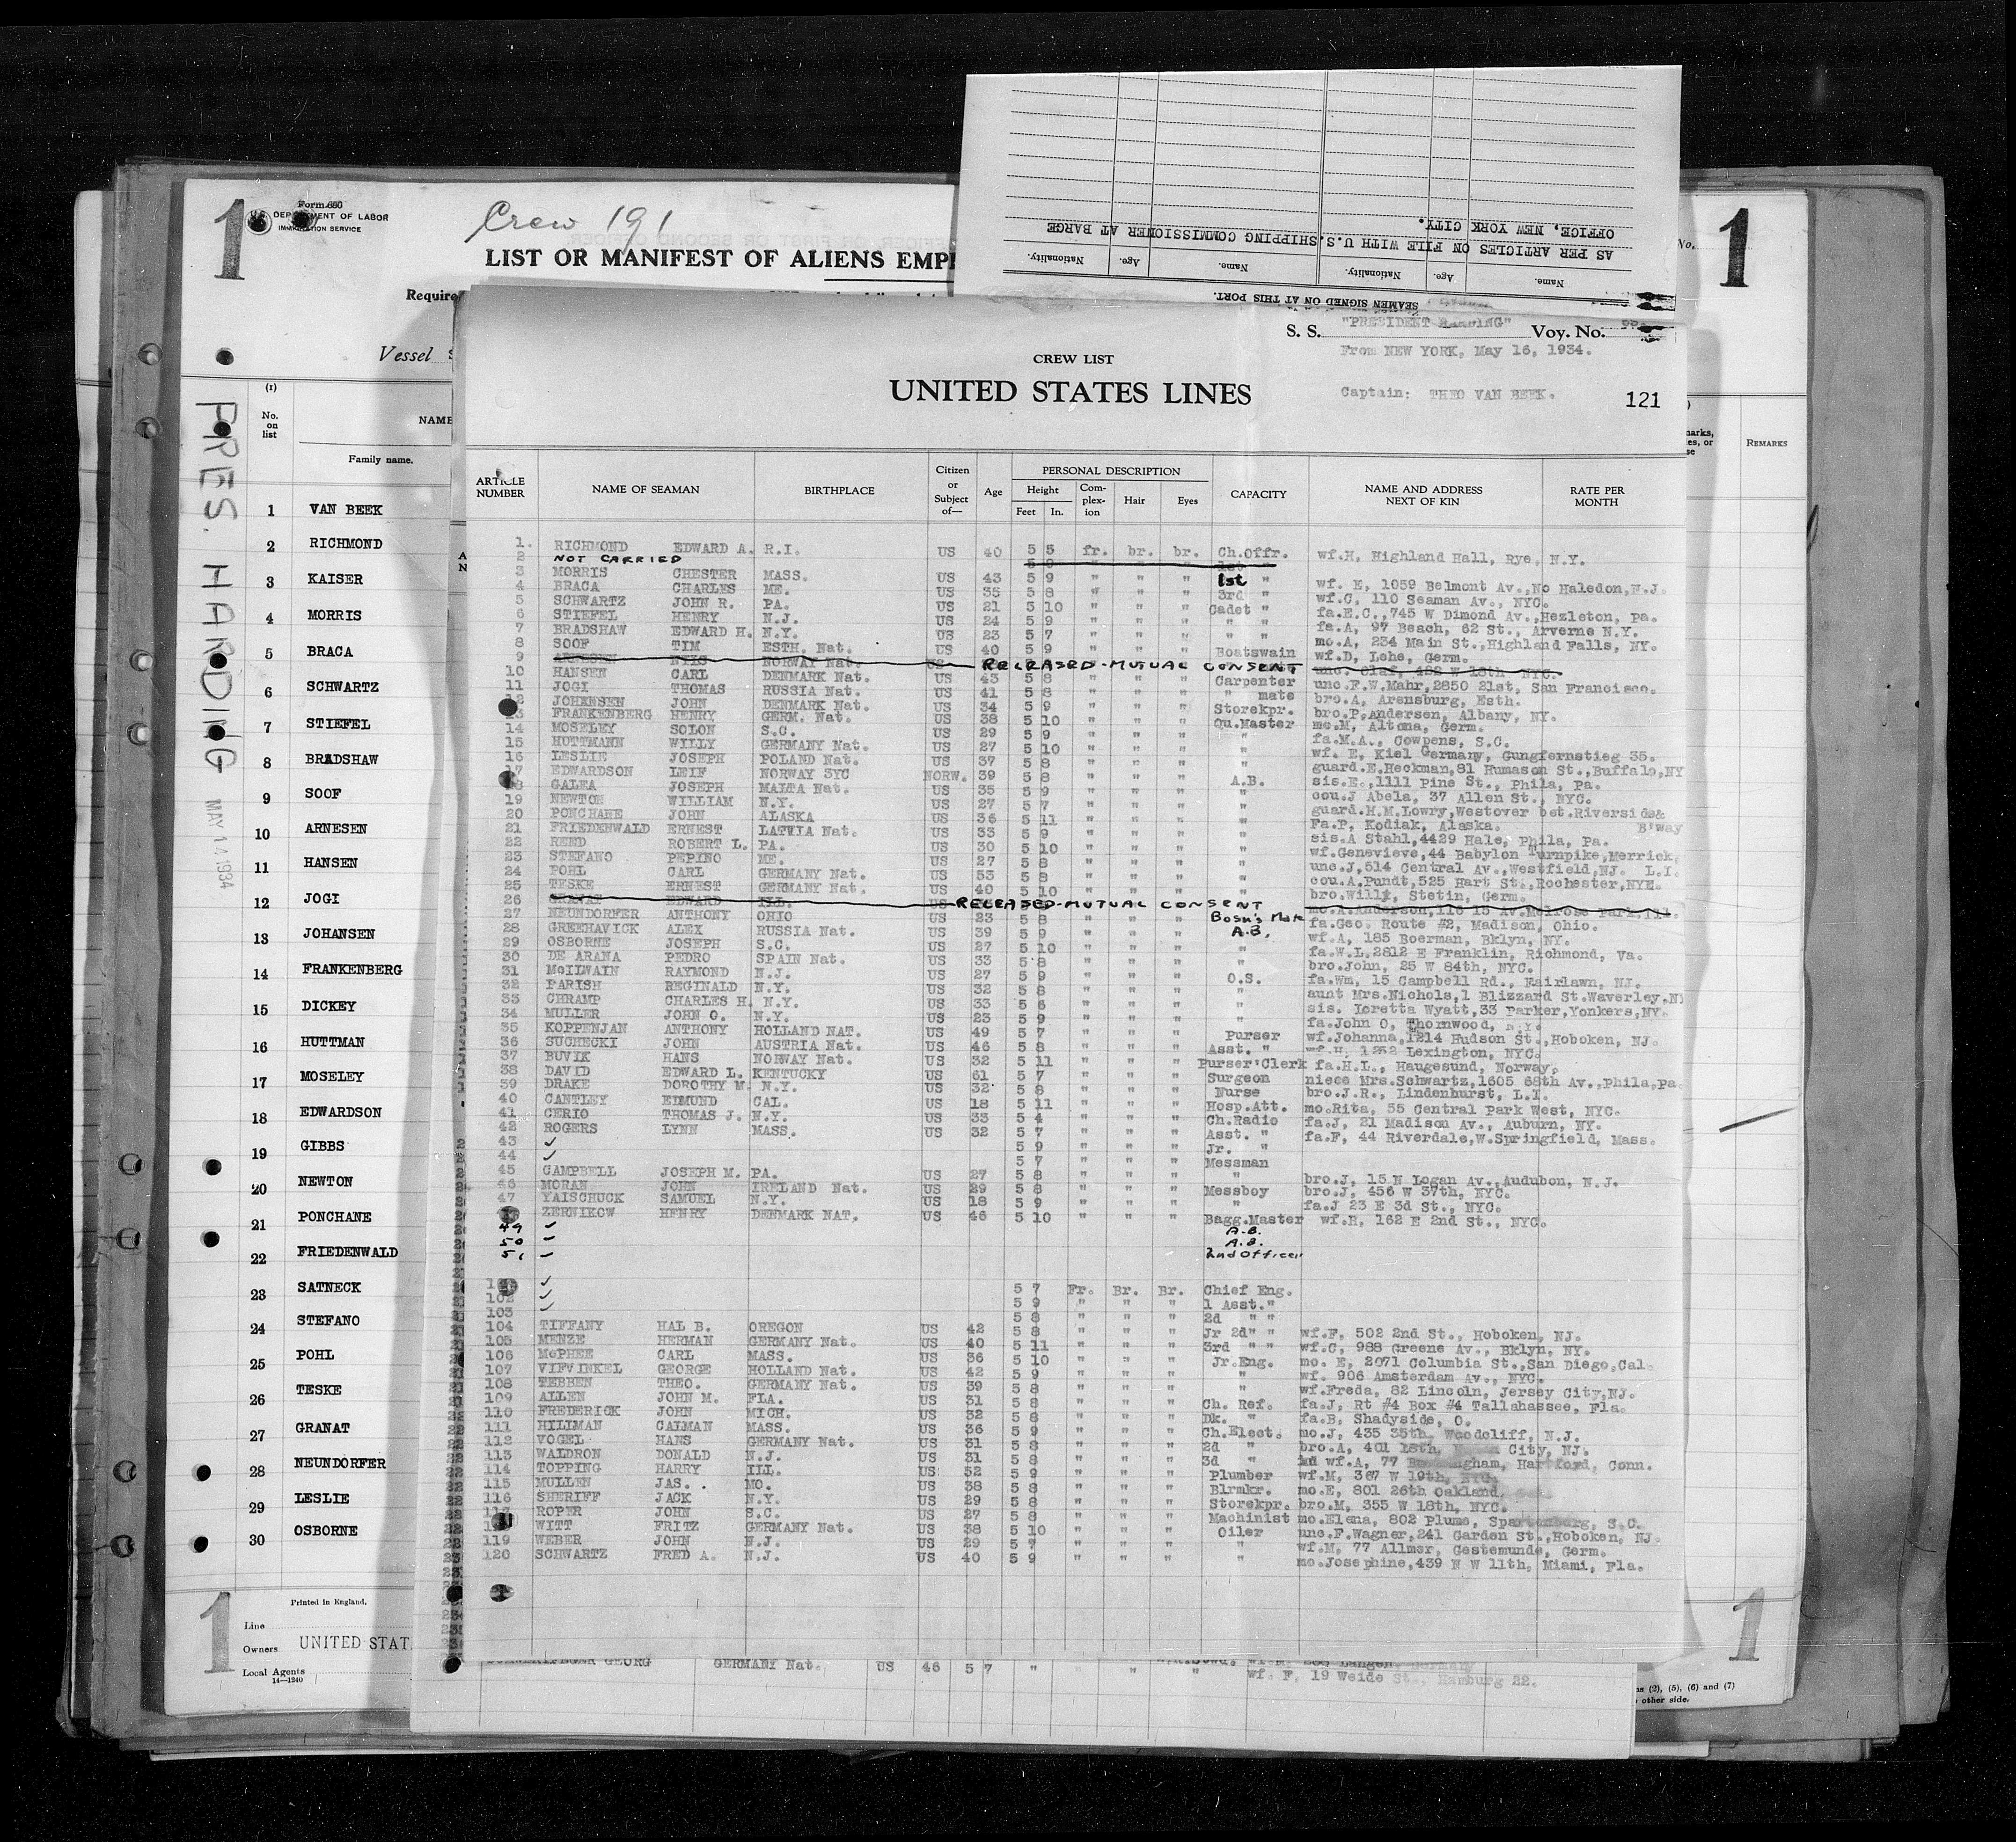 1
Form 680
U.S. DEPARTMENT OF LABOR
IMMIGRATION SERVICE
Crew 191
LIST OR MANIFEST OF ALIENS EMP
Require
Vessel
No.
1
PRES. HARDING
MAY 14 1934
(1)
No. on list
NAME
Family name.
REMARKS
1 VAN BEEK
2 RICHMOND
3 KAISER
4 MORRIS
5 BRACA
6 SCHWARTZ
7 STIEFEL
8 BRADSHAW
9 SOOF
10 ARNESEN
11 HANSEN
12 JOGI
13 JOHANSEN
14 FRANKENBERG
15 DICKEY
16 HUTTMAN
17 MOSELEY
18 EDWARDSON
19 GIBBS
20 NEWTON
21 PONCHANE
22 FRIEDENWALD
23 SATNECK
24 STEFANO
25 POHL
26 TESKE
27 GRANAT
28 NEUNDORFER
29 LESLIE
30 OSBORNE
1
Printed in England.
Line
Owners UNITED STAT
Local Agents
14—1240
SEAMEN SIGNED ON AT THIS PORT.
Name. Age. Nationality. Name. Age. Nationality.
AS PER ARTICLES ON FILE WITH U.S. SHIPPING COMMISSIONER AT BARGE
OFFICE, NEW YORK CITY.
S. S. "PRESIDENT HARDING" Voy. No.
From NEW YORK, May 16, 1934.
CREW LIST
UNITED STATES LINES
Captain: THEO VAN BEEK.
121
ARTICLE NUMBER NAME OF SEAMAN BIRTHPLACE Citizen or Subject of— Age PERSONAL DESCRIPTION Height Feet In. Complexion Hair Eyes CAPACITY NAME AND ADDRESS NEXT OF KIN RATE PER MONTH
1. RICHMOND EDWARD A. R.I. US 40 5 5 fr. br. br. Ch.Offr. wf.H, Highland Hall, Rye, N.Y.
2 NOT CARRIED 5 9 1st "
3 MORRIS CHESTER MASS. US 43 5 9 " " " 1st " wf. E, 1059 Belmont Av.,No Haledon,N.J.
4 BRACA CHARLES ME. US 35 5 8 " " " 3rd " wf.C, 110 Seaman Av., NYC.
5 SCHWARTZ JOHN R. PA. US 21 5 10 " " " Cadet " fa.E.C.,745 W Dimond Av.,Hezleton, Pa.
6 STIEFEL HENRY N.J. US 24 5 9 " " " " " fa.A, 97 Beach, 62 St., Arverne N.Y.
7 BRADSHAW EDWARD H. N.Y. US 23 5 7 " " " " " mo.A, 234 Main St.,Highland Falls, NY.
8 SOOF TIM ESTH. Nat. US 40 5 9 " " " Boatswain wf.D, Lehe, Germ.
9 ARNESEN NILS NORWAY Nat. US RELEASED-MUTUAL CONSENT unc. Olaf, 482 W 18th NYC.
10 HANSEN CARL DENMARK Nat. US 43 5 8 " " " Carpenter unc.F.W.Mahr,2850 21st, San Francisco.
11 JOGI THOMAS RUSSIA Nat. US 41 5 8 " " " " mate bro.A, Arensburg, Esth.
12 JOHANSEN JOHN DENMARK Nat. US 34 5 9 " " " Storekpr. bro.P,Andersen, Albany, NY.
13 FRANKENBERG HENRY GERM. Nat. US 38 5 10 " " " Qu.Master mo.M, Altona, Germ.
14 MOSELEY SOLON S.C. US 29 5 9 " " " " fa.M.A., Cowpens, S.C.
15 HUTTMANN WILLY GERMANY Nat. US 27 5 10 " " " " wf. E, Kiel Germany, Gungfernstieg 35.
16 LESLIE JOSEPH POLAND Nat. US 37 5 8 " " " " guard.E.Heckman,81 Humason St.,Buffalo,NY
17 EDWARDSON LEIF NORWAY 3YC NORW. 39 5 8 " " " A.B. sis.E.,1111 Pine St., Phila, Pa.
18 GALEA JOSEPH MALTA Nat. US 35 5 9 " " " " cou.J Abela, 37 Allen St., NYC.
19 NEWTON WILLIAM N.Y. US 27 5 7 " " " " guard.H.M.Lowry,Westover bet.Riverside& B'way
20 PONCHANE JOHN ALASKA US 36 5 11 " " " " Fa.P, Kodiak, Alaska.
21 FRIEDENWALD ERNEST LATVIA Nat. US 33 5 9 " " " " sis.A Stahl,4429 Hale, Phila, Pa.
22 REED ROBERT L. PA. US 30 5 10 " " " " wf.Genevieve,44 Babylon Turnpike,Merrick, L.I.
23 STEFANO PEPINO ME. US 27 5 8 " " " " unc.J,514 Central Av.,Westfield,NJ.
24 POHL CARL GERMANY Nat. US 53 5 8 " " " " cou.A.Pundt,525 Hart St.,Rochester,NYE.
25 TESKE ERNEST GERMANY Nat. US 40 5 10 " " " " bro.Willy, Stetin, Germ.
26 GRANAT EDWARD ILL. US RELEASED-MUTUAL CONSENT mo.A.Anderson,116 15 Av.Melrose Park,Ill.
27 NEUNDORFER ANTHONY OHIO US 23 5 8 " " " Bosn's Mate fa.Geo. Route #2, Madison, Ohio.
28 GREEHAVICK ALEX RUSSIA Nat. US 39 5 9 " " " A.B. wf.A, 185 Boerman, Bklyn, NY.
29 OSBORNE JOSEPH S.C. US 27 5 10 " " " " fa.W.L.2812 E Franklin, Richmond, Va.
30 DE ARANA PEDRO SPAIN Nat. US 33 5 8 " " " " bro.John, 25 W 84th, NYC.
31 McILWAIN RAYMOND N.J. US 27 5 9 " " " O.S. fa.Wm, 15 Campbell Rd., Fairlawn, NJ.
32 PARISH REGINALD N.Y. US 32 5 8 " " " " aunt Mrs.Nichols,1 Blizzard St.Waverley,NY
33 CHRAMP CHARLES H. N.Y. US 33 5 6 " " " " sis. Loretta Wyatt,33 Parker,Yonkers,NY.
34 MULLER JOHN O. N.Y. US 23 5 9 " " " " fa.John O, Thornwood, N.Y.
35 KOPPENJAN ANTHONY HOLLAND NAT. US 49 5 7 " " " Purser wf.Johanna,1214 Hudson St.,Hoboken, NJ.
36 SUCHECKI JOHN AUSTRIA Nat. US 46 5 8 " " " Asst. " wf.H, 1252 Lexington, NYC.
37 BUVIK HANS NORWAY Nat. US 32 5 11 " " " Purser'Clerk fa.H.L., Haugesund, Norway.
38 DAVID EDWARD L. KENTUCKY US 61 5 7 " " " Surgeon niece Mrs.Schwartz,1605 68th Av.,Phila,Pa.
39 DRAKE DOROTHY M. N.Y. US 32 5 8 " " " Nurse bro.J.R., Lindenhurst, L.I.
40 CANTLEY EDMUND CAL. US 18 5 11 " " " Hosp.Att. mo.Rita, 55 Central Park West, NYC.
41 CERIO THOMAS J. N.Y. US 33 5 4 " " " Ch.Radio fa.J, 21 Madison Av., Auburn, NY.
42 ROGERS LYNN MASS. US 32 5 7 " " " Asst. " fa.F, 44 Riverdale,W.Springfield, Mass.
43 ✓ 5 9 " " " Jr. "
44 ✓ 5 7 " " " Messman
45 CAMPBELL JOSEPH M. PA. US 27 5 8 " " " " bro.J, 15 N Logan Av.,Audubon, N.J.
46 MORAN JOHN IRELAND Nat. US 29 5 8 " " " Messboy bro.J, 456 W 37th, NYC.
47 YAISCHUCK SAMUEL N.Y. US 18 5 9 " " " " fa.J 23 E 3d St., NYC.
48 ZERNIKOW HENRY DENMARK NAT. US 46 5 10 " " " Bagg.Master wf.R, 162 E 2nd St., NYC.
49 ✓ A.B.
50 – A.B.
51 – 2nd Officer
101 ✓ 5 7 Fr. Br. Br. Chief Eng.
102 ✓ 5 9 " " " 1 Asst."
103 ✓ 5 8 " " " 2d " "
104 TIFFANY HAL B. OREGON US 42 5 8 " " " Jr 2d" " wf.F, 502 2nd St., Hoboken, NJ.
105 MENZE HERMAN GERMANY Nat. US 40 5 11 " " " 3rd " " wf.C, 988 Greene Av., Bklyn, NY.
106 McPHEE CARL MASS. US 36 5 10 " " " Jr.Eng. mo. E, 2071 Columbia St.,San Diego,Cal.
107 VIFVINKEL GEORGE HOLLAND Nat. US 42 5 9 " " " " wf. 906 Amsterdam Av., NYC.
108 TEBBEN THEO. GERMANY Nat. US 39 5 8 " " " " wf.Freda, 82 Lincoln, Jersey City,NJ.
109 ALLEN JOHN M. FLA. US 31 5 8 " " " Ch. Ref. fa.J, Rt #4 Box #4 Tallahassee, Fla.
110 FREDERICK JOHN MICH. US 32 5 8 " " " Dk. " fa.B, Shadyside, O.
111 HILLMAN CALMAN MASS. US 36 5 9 " " " Ch.Elect. mo.J, 435 35th, Woodcliff, N.J.
112 VOGEL HANS GERMANY Nat. US 31 5 8 " " " 2d " bro.A, 401 18th, City, NJ.
113 WALDRON DONALD N.J. US 31 5 8 " " " 3d " wf.A, 77 Hartford, Conn.
114 TOPPING HARRY ILL. US 52 5 9 " " " Plumber wf.M, 367 W 19th, NYC.
115 MULLEN JAS. MO. US 38 5 8 " " " Blrmkr. mo.E, 801 26th Oakland,
116 SHERIFF JACK N.Y. US 29 5 8 " " " Storekpr. bro.M, 355 W 18th, NYC.
117 ROPER JOHN S.C. US 27 5 8 " " " Machinist mo.Elena, 802 Plume, Spartenburg, S.C.
118 WITT FRITZ GERMANY Nat. US 38 5 10 " " " Oiler unc.F.Wagner,241 Garden St.,Hoboken, NJ.
119 WEBER JOHN N.J. US 29 5 7 " " " " wf.M, 77 Allmer, Gestemunde, Germ.
120 SCHWARTZ FRED A. N.J. US 40 5 9 " " " " mo.Josephine,439 N W 11th, Miami, Fla.
GEORG GERMANY Nat. US 46 5 7 " " "
wf. F, 19 Weide St., Hamburg 22.
(2), (5), (6) and (7)
other side.
1